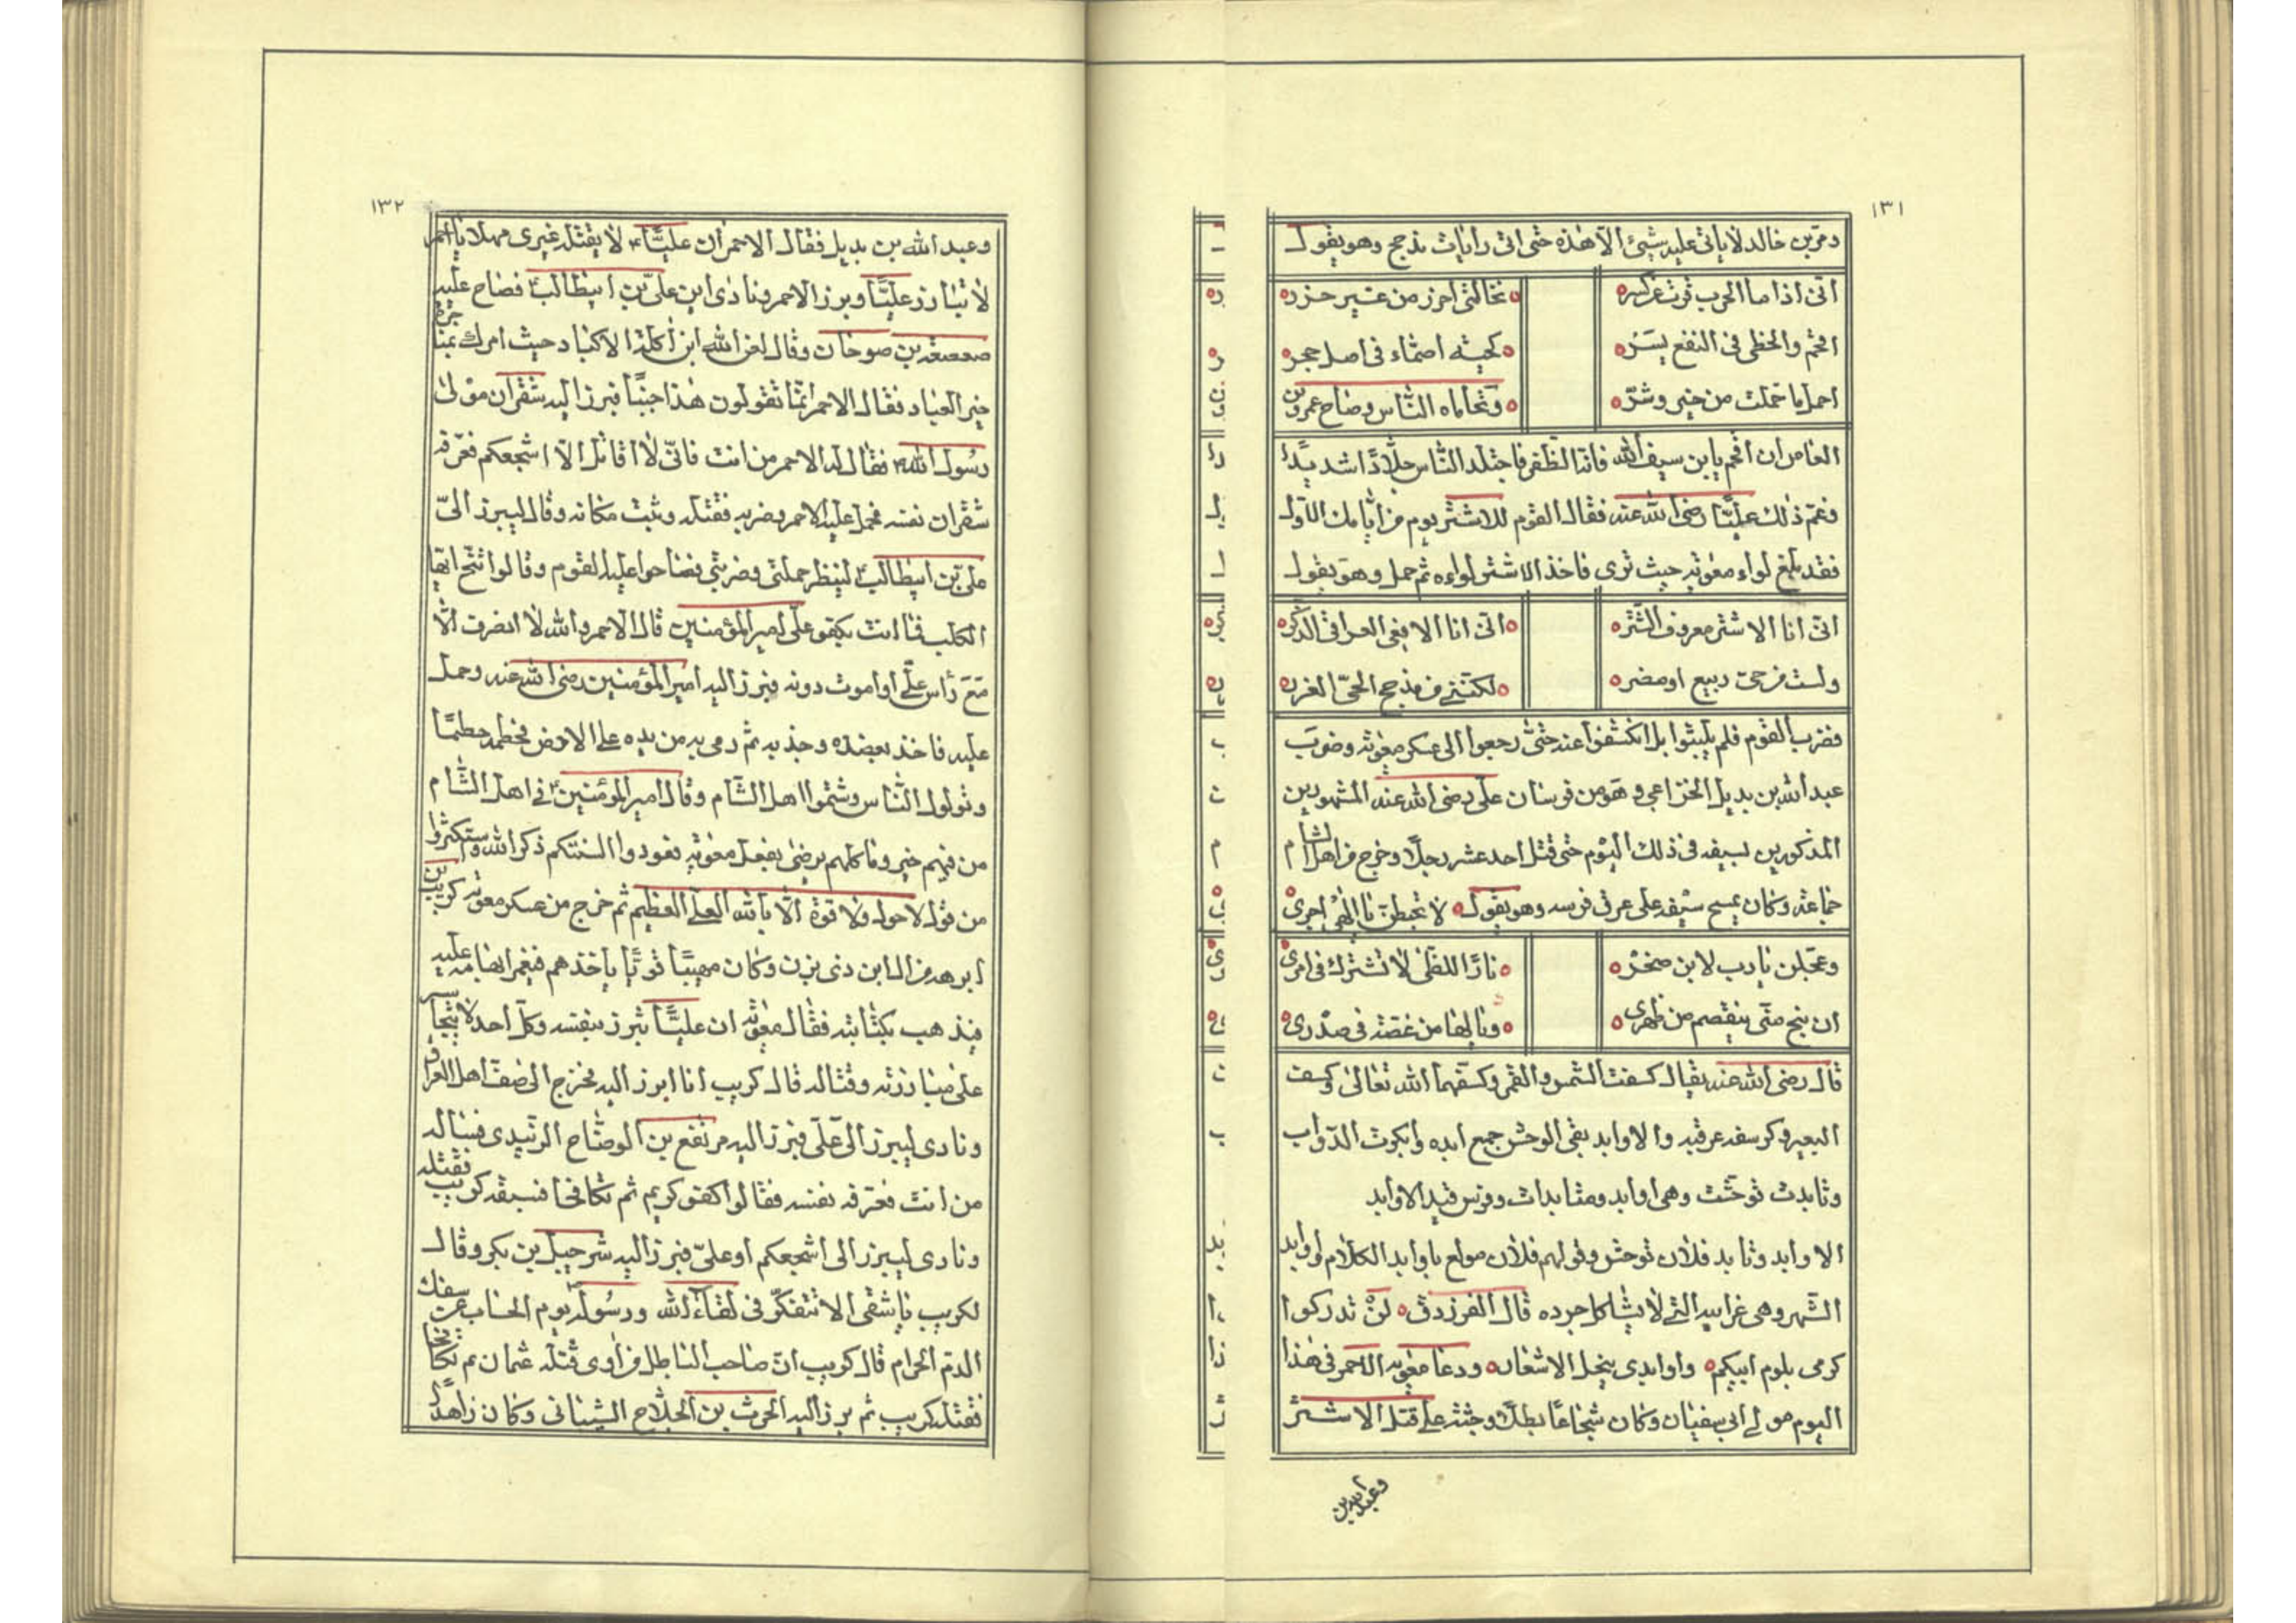 ١٣١
دمر بن خالد لا يأتى عليه شيئ الا هذه حتى اتى رايات مذحج وهو يقول
انى اذا ما الحرب فرت عن كسره تخالنى اخرز من غير حزره
اقحم والخطى فى النقع يسره كحيته اصماء فى اصل حجره
احمل ما حملت من خير وشره وتحاماه الناس وصاح عمرو بن
العاص ان اقحم يا بن سيف الله فانه الظفر فاجتلد الناس جلادا شديدا
فغم ذلك عليا رضى الله عنه فقال القوم للاشتر يوم من ايامك الاول
فقد بلغ لواء معوية حيث ترى فاخذ الاشتر لواءه ثم حمل وهو يقول
انى انا الاشتر معروف الشتره انى انا الافعى العراقى الذكره
ولست من حى ربيع او مضره لكننى من مذحج الحى الغرره
فضرب القوم فلم يلبثوا بل انكشفوا عنه حتى رجعوا الى عسكر معوية وضرب
عبد الله بن بديل الخزاعى وهو من فرسان على رضى الله عنه المشهورين
المذكورين بسيفه فى ذلك اليوم حتى قتل احد عشر رجلا وخرج من اهل الشام
جماعة وكان يمسح سيفه على عرف فرسه وهو يقول لا تحبطن يا الهى اجرى
وعجلن يا رب لابن صخره نارا للظى لا تشترك فى امرى
ان ينج منى ينقصم من ظهرى ويا لها من غصة فى صدرى
قال رضى الله عنه يقال كسفت الشمس والقمر وكسفهما الله تعالى وكسف
البعير وكرسفه عرقبه والاوابد بقى الوحش جمع ابده وابكرت الدواب
وتابدت توحشت وهى اوابد ومتابدات وفرس قيد الاوابد
الاوابد وتابد فلان توحش وقولهم فلان مولع باوابد الكلام اوابد
الشعر وهى غرايبه التى لا يشاكل جوده قال الفرزدق لن تدركوا
كرمى بلوم ابيكم واوابدى بنحل الاشعار ودعا معوية الاحمر فى هذا
اليوم مولى ابى سفيان وكان شجاعا بطلا وحثه على قتل الاشتر
وعبد الله بن
١٣٢
وعبد الله بن بديل فقال الاحمر ان عليا لا يقتله غيرى مهلا يا احمر
لا تبارز عليا وبرز الاحمر ونادى اين على بن ابيطالب فصاح عليه
صعصعة بن صوحان وقال لعن الله ابن آكلة الاكباد حيث امرك بمبارزة
خير العباد فقال الاحمر انما تقولون هذا جبنا فبرز اليه شقران مولى
رسول الله فقال له الاحمر من انت فانى لا اقاتل الا اشجعكم فعرفه
شقران نفسه فحمل عليه الاحمر وضربه فقتله وثبت مكانه وقال ليبرز الى
على بن ابيطالب لينظر حملتى وضربتى فصاحوا عليه القوم وقالوا تنح ايها
الكلب فما انت بكفو على امير المؤمنين قال الاحمر والله لا انصرف الا
مع راس على او اموت دونه فبرز اليه امير المؤمنين رضى الله عنه وحمل
عليه فاخذ بعضده وجذبه ثم رمى به من يده على الارض فحطمه حطما
وتولول الناس وشتموا اهل الشام وقال امير المؤمنين فى اهل الشام
من فيهم خير وما كلهم يرضى بفعل معوية فعودوا السنتكم ذكر الله واستكثروا
من قول لا حول ولا قوة الا بالله العلى العظيم ثم خرج من عسكر معوية كريب بن
ابرهه من ال ابن ذى يزن وكان مهيبا قويا يأخذ فيغمز ابهامه عليه
فيذهب بكتابته فقال معوية ان عليا يبرز بنفسه وكل احد لا يتجاسر
على مبارزته وقتاله قال كريب انا ابرز اليه فخرج الى صف اهل العراق
ونادى ليبرز الى على فبرز اليه مرتفع بن الوضاح الزبيدى فساله
من انت فعرفه نفسه فقالوا كفو كريم ثم تكافحا فسبقه كريب فقتله
ونادى ليبرز الى اشجعكم او على فبرز اليه شرحبيل بن بكر وقال
لكريب يا شقى الا تتفكر فى لقاء الله ورسوله يوم الحساب عن سفك
الدم الحرام قال كريب ان صاحب الباطل من اوى قتلة عثمان ثم تكافحا
فقتله كريب ثم برز اليه الحرث بن الجلاح الشيبانى وكان زاهدا